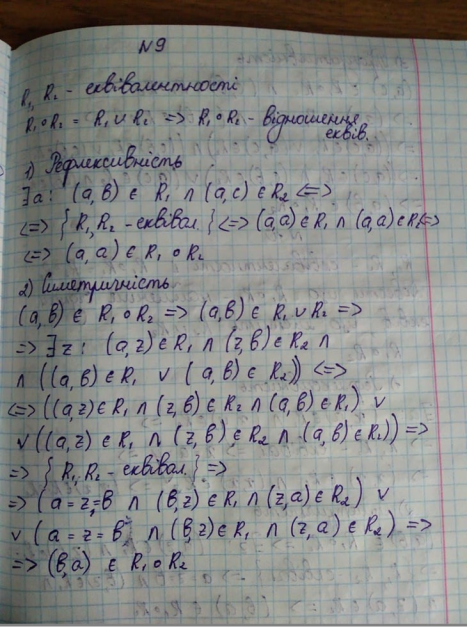 N9
R₁, R₂ - еквівалентності
R₁∘R₂ = R₁ ∪ R₂ => R₁∘R₂ - відношення
еквів.
1) Рефлексивність
∃a: (a,b) ∈ R₁ ∧ (a,c) ∈ R₂ <=>
<=> {R₁,R₂ - еквівал.} <=> (a,a) ∈ R₁ ∧ (a,a) ∈ R₂ <=>
<=> (a,a) ∈ R₁∘R₂
2) Симетричність
(a,b) ∈ R₁∘R₂ => (a,b) ∈ R₁ ∪ R₂ =>
=> ∃z: (a,z) ∈ R₁ ∧ (z,b) ∈ R₂ ∧
∧ ((a,b) ∈ R₁ ∨ (a,b) ∈ R₂)) <=>
<=> ((a,z) ∈ R₁ ∧ (z,b) ∈ R₂ ∧ (a,b) ∈ R₁) ∨
∨ ((a,z) ∈ R₁ ∧ (z,b) ∈ R₂ ∧ (a,b) ∈ R₂)) =>
=> {R₁,R₂ - еквівал.} =>
=> (a=z=b ∧ (b,z) ∈ R₁ ∧ (z,a) ∈ R₂) ∨
∨ (a=z=b ∧ (b,z) ∈ R₁ ∧ (z,a) ∈ R₂) =>
=> (b,a) ∈ R₁∘R₂